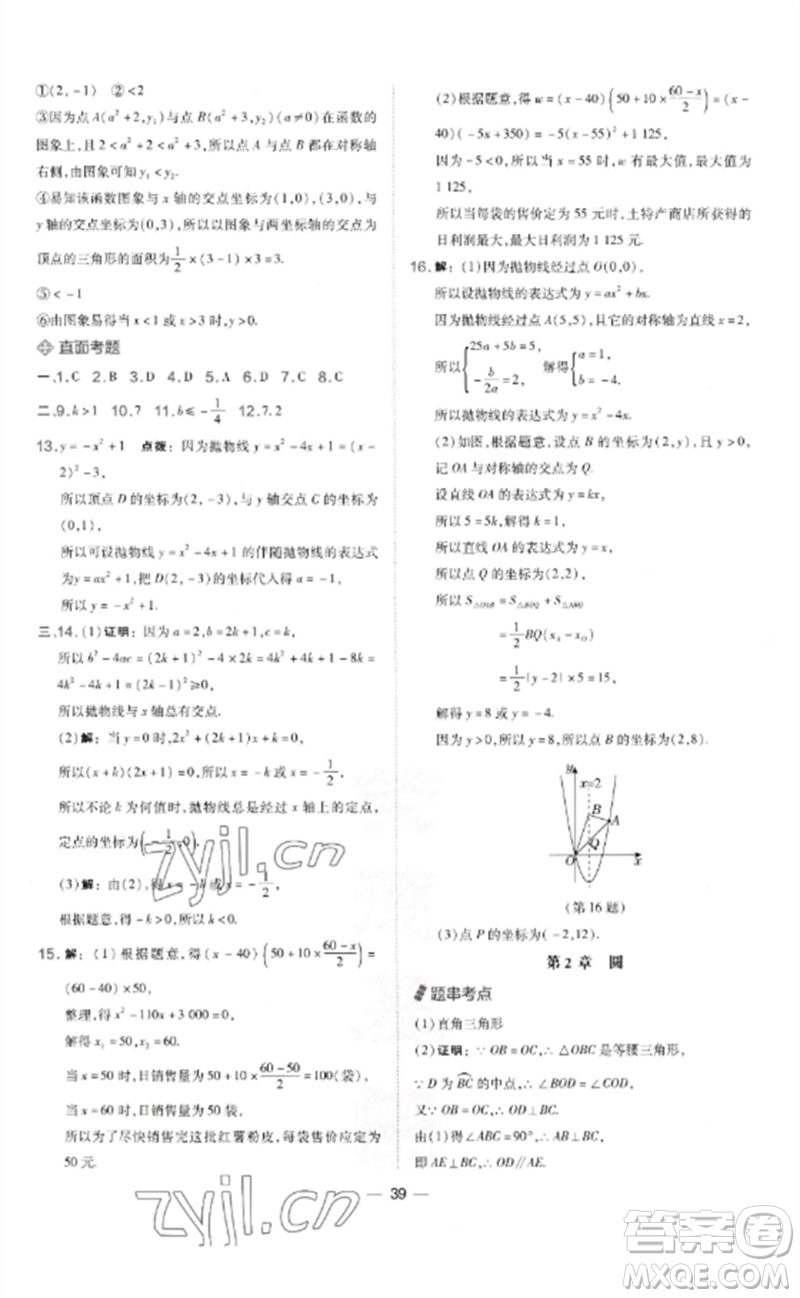 ①(2,-1) ②<2
③因为点 A(a²+2,y₁)与点 B(a²+3,y₂)在函数的
图象上,且 2<a²+2<a²+3,所以点 A、点 B 在对称轴
右侧,由图象可知 y₁<y₂.
④易知该函数图象与 x 轴的交点坐标为(1,0),(3,0),与
y 轴的交点坐标为(0,3),所以以图象与两坐标轴的交点为
顶点的三角形的面积为 1/2×(3-1)×3=3.
⑤<-1
⑥由图象易得当 x<1 或 x>3 时,y>0.
直面考题
一、1.C 2.B 3.D 4.D 5.A 6.B 7.C 8.C
二、9.k>1 10.7 11.b≤-1/4 12.7.2
13.y=-x²+1 点拨:因为抛物线 y=x²-4x+1=(x-
2)²-3,
所以顶点 D 的坐标为(2,-3),与 y 轴交点 C 的坐标为
(0,1),
所以可设抛物线 y=x²-4x+1 的伴随抛物线的表达式
为 y=ax²+1,把 D(2,-3)的坐标代入得 a=-1,
所以 y=-x²+1.
三、14.(1)证明:因为 a=2,b=2k+1,c=k,
所以 b²-4ac=(2k+1)²-4×2k=4k²+4k+1-8k=
4k²-4k+1=(2k-1)²≥0,
所以抛物线与 x 轴总有交点.
(2)解:当 y=0 时,2x²+(2k+1)x+k=0,
所以(x+k)(2x+1)=0,所以 x=-k 或 x=-1/2,
所以不论 k 为何值时,抛物线总是过 x 轴上的定点,
定点的坐标为(-1/2,0).
(3)解:由(2),得 x=-k 或 x=-1/2,
根据题意,得-k>0,所以 k<0.
15.解:(1)根据题意,得(x-40)(50+10×(60-x)/2)=
(60-40)×50,
整理,得 x²-110x+3 000=0,
解得 x₁=50,x₂=60.
当 x=50 时,日销售量为 50+10×(60-50)/2=100(袋),
当 x=60 时,日销售量为 50 袋,
所以为了尽快销售完这批红薯粉皮,每袋的售价应定为
50 元.
(2)根据题意,得 w=(x-40)(50+10×(60-x)/2)=(x-
40)(-5x+350)=-5(x-55)²+1 125,
因为-5<0,所以当 x=55 时,w 有最大值,最大值为
1 125,
所以当每袋的售价定为 55 元时,土特产商店所获得的
日利润最大,最大日利润为 1 125 元.
16.解:(1)因为抛物线经过点 O(0,0),
所以设抛物线的表达式为 y=ax²+bx.
因为抛物线经过点 A(5,5),且它的对称轴为直线 x=2,
所以{25a+5b=5, -b/2a=2, 解得{a=1, b=-4.
所以抛物线的表达式为 y=x²-4x.
(2)如图,根据题意,设点 B 的坐标为(2,y),且 y>0,
记 OA 与对称轴的交点为 Q.
设直线 OA 的表达式为 y=kx,
所以 5=5k,解得 k=1,
所以直线 OA 的表达式为 y=x,
所以点 Q 的坐标为(2,2),
所以 S△OAB=S△BOQ+S△ABQ
=1/2BQ(x_A-x_O)
=1/2|y-2|×5=15,
解得 y=8 或 y=-4.
因为 y>0,所以 y=8,所以点 B 的坐标为(2,8).
y x=2
B A
Q
O x
(第16题)
(3)点 P 的坐标为(-2,12).
第 2 章 圆
题串考点
(1)直角三角形
(2)证明:∵OB=OC,∴△OBC 是等腰三角形,
∵D 为 BC 的中点,∴∠BOD=∠COD,
又∵OB=OC,∴OD⊥BC,
由(1)得∠ABC=90°,∴AB⊥BC,
即 AE⊥BC,∴OD∥AE.
39
zyjl.cn
zyjl.cn
答案卷
MXQE.COM